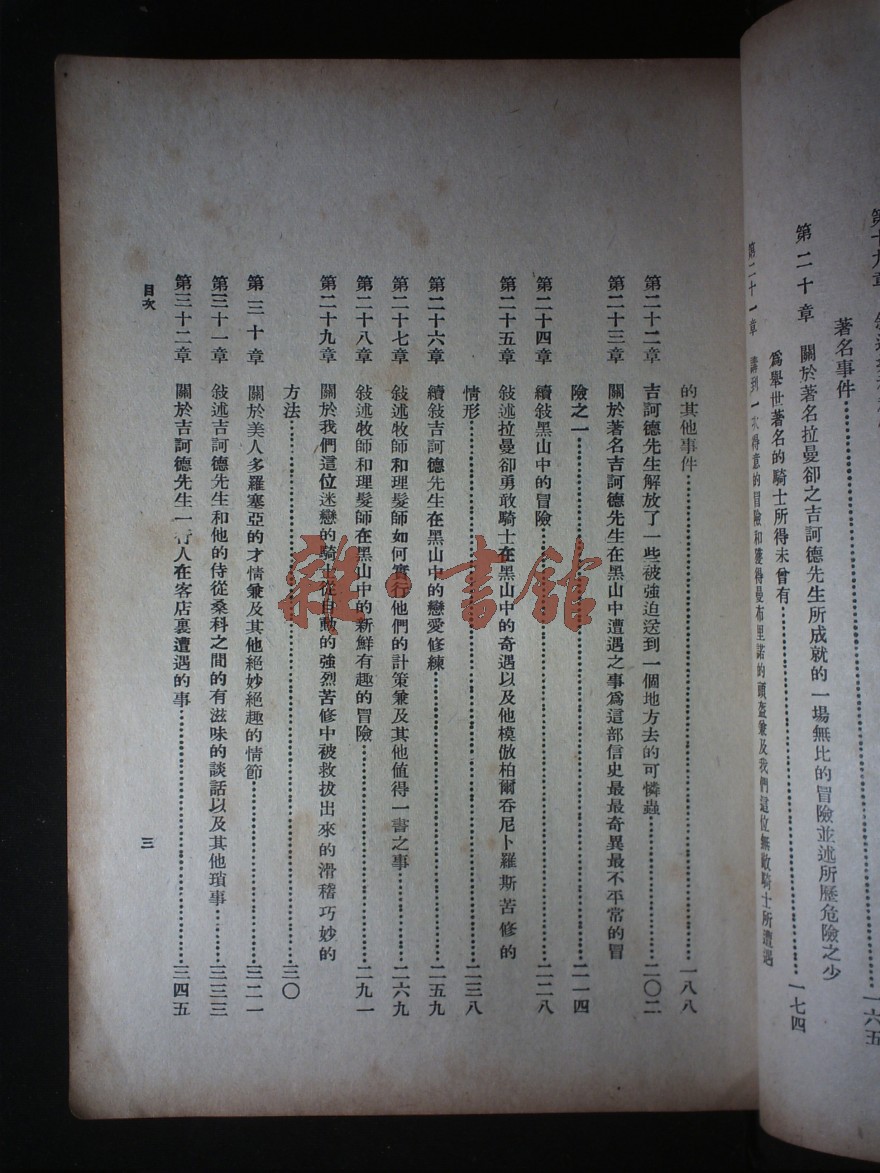 著名事件……一六五
第二十章 關於著名拉曼卻之吉訶德先生所成就的一場無比的冒險並述所歷危險之少
爲舉世著名的騎士所得未曾有……一七四
第二十一章 講到一次得意的冒險和獲得曼布里諾的頭盔兼及我們這位無敵騎士所遭遇
的其他事件……一八八
第二十二章 吉訶德先生解放了一些被強迫送到一個地方去的可憐蟲……二〇二
第二十三章 關於著名吉訶德先生在黑山中遭遇之事爲這部信史最最奇異最不平常的冒
險之一……二一四
第二十四章 續敍黑山中的冒險……二二八
第二十五章 敍述拉曼卻勇敢騎士在黑山中的奇遇以及他模倣柏爾吞尼卜羅斯苦修的
情形……二三八
第二十六章 續敍吉訶德先生在黑山中的戀愛修練……二五九
第二十七章 敍述牧師和理髮師如何實行他們的計策兼及其他値得一書之事……二六九
第二十八章 敍述牧師和理髮師在黑山中的新鮮有趣的冒險……二九一
第二十九章 關於我們這位迷戀的騎士從自動的強烈苦修中被救拔出來的滑稽巧妙的
方法……三〇
第三十章 關於美人多羅塞亞的才情兼及其他絕妙絕趣的情節……三二一
第三十一章 敍述吉訶德先生和他的侍從桑科之間的有滋味的談話以及其他瑣事……三三三
第三十二章 關於吉訶德先生一行人在客店裏遭遇的事……三四五
目次
三
雜·書館